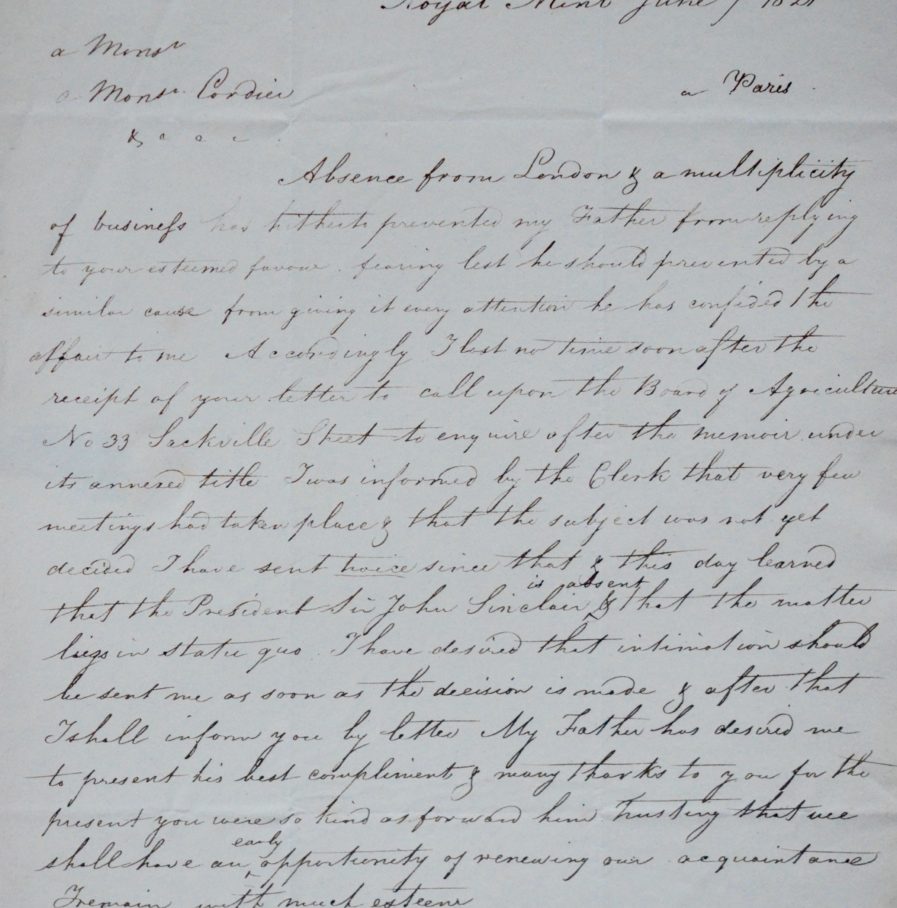 Royal Mint June 7 182
a Monsr
a Monsr. Cordier a Paris.
& c c c
Absence from London & a multiplicity
of business has hitherto prevented my Father from replying
to your esteemed favour. fearing lest he should prevented by a
similar cause from giving it every attention he has confided the
affair to me Accordingly I lost no time soon after the
receipt of your letter to call upon the Board of Agriculture
No 33 Sackville Street to enquire after the memoir under
its annexed title I was informed by the Clerk that very few
meetings had taken place & that the subject was not yet
decided I have sent twice since that & this day learned
that the President Sir John Sinclair is absent & that the matter
lies in statu quo. I have desired that intimation should
be sent me as soon as the decision is made & after that
I shall inform you by letter My Father has desired me
to present his best compliment & many thanks to you for the
present you were so kind as forward him Trusting that wee
shall have an early opportunity of renewing our acquaintance
I remain with much esteem